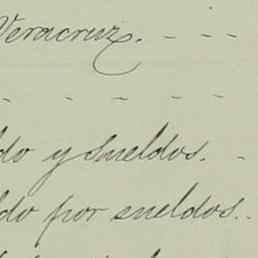 Veracruz. - - -
- - - - -
do y sueldos. -
ldo por sueldos..